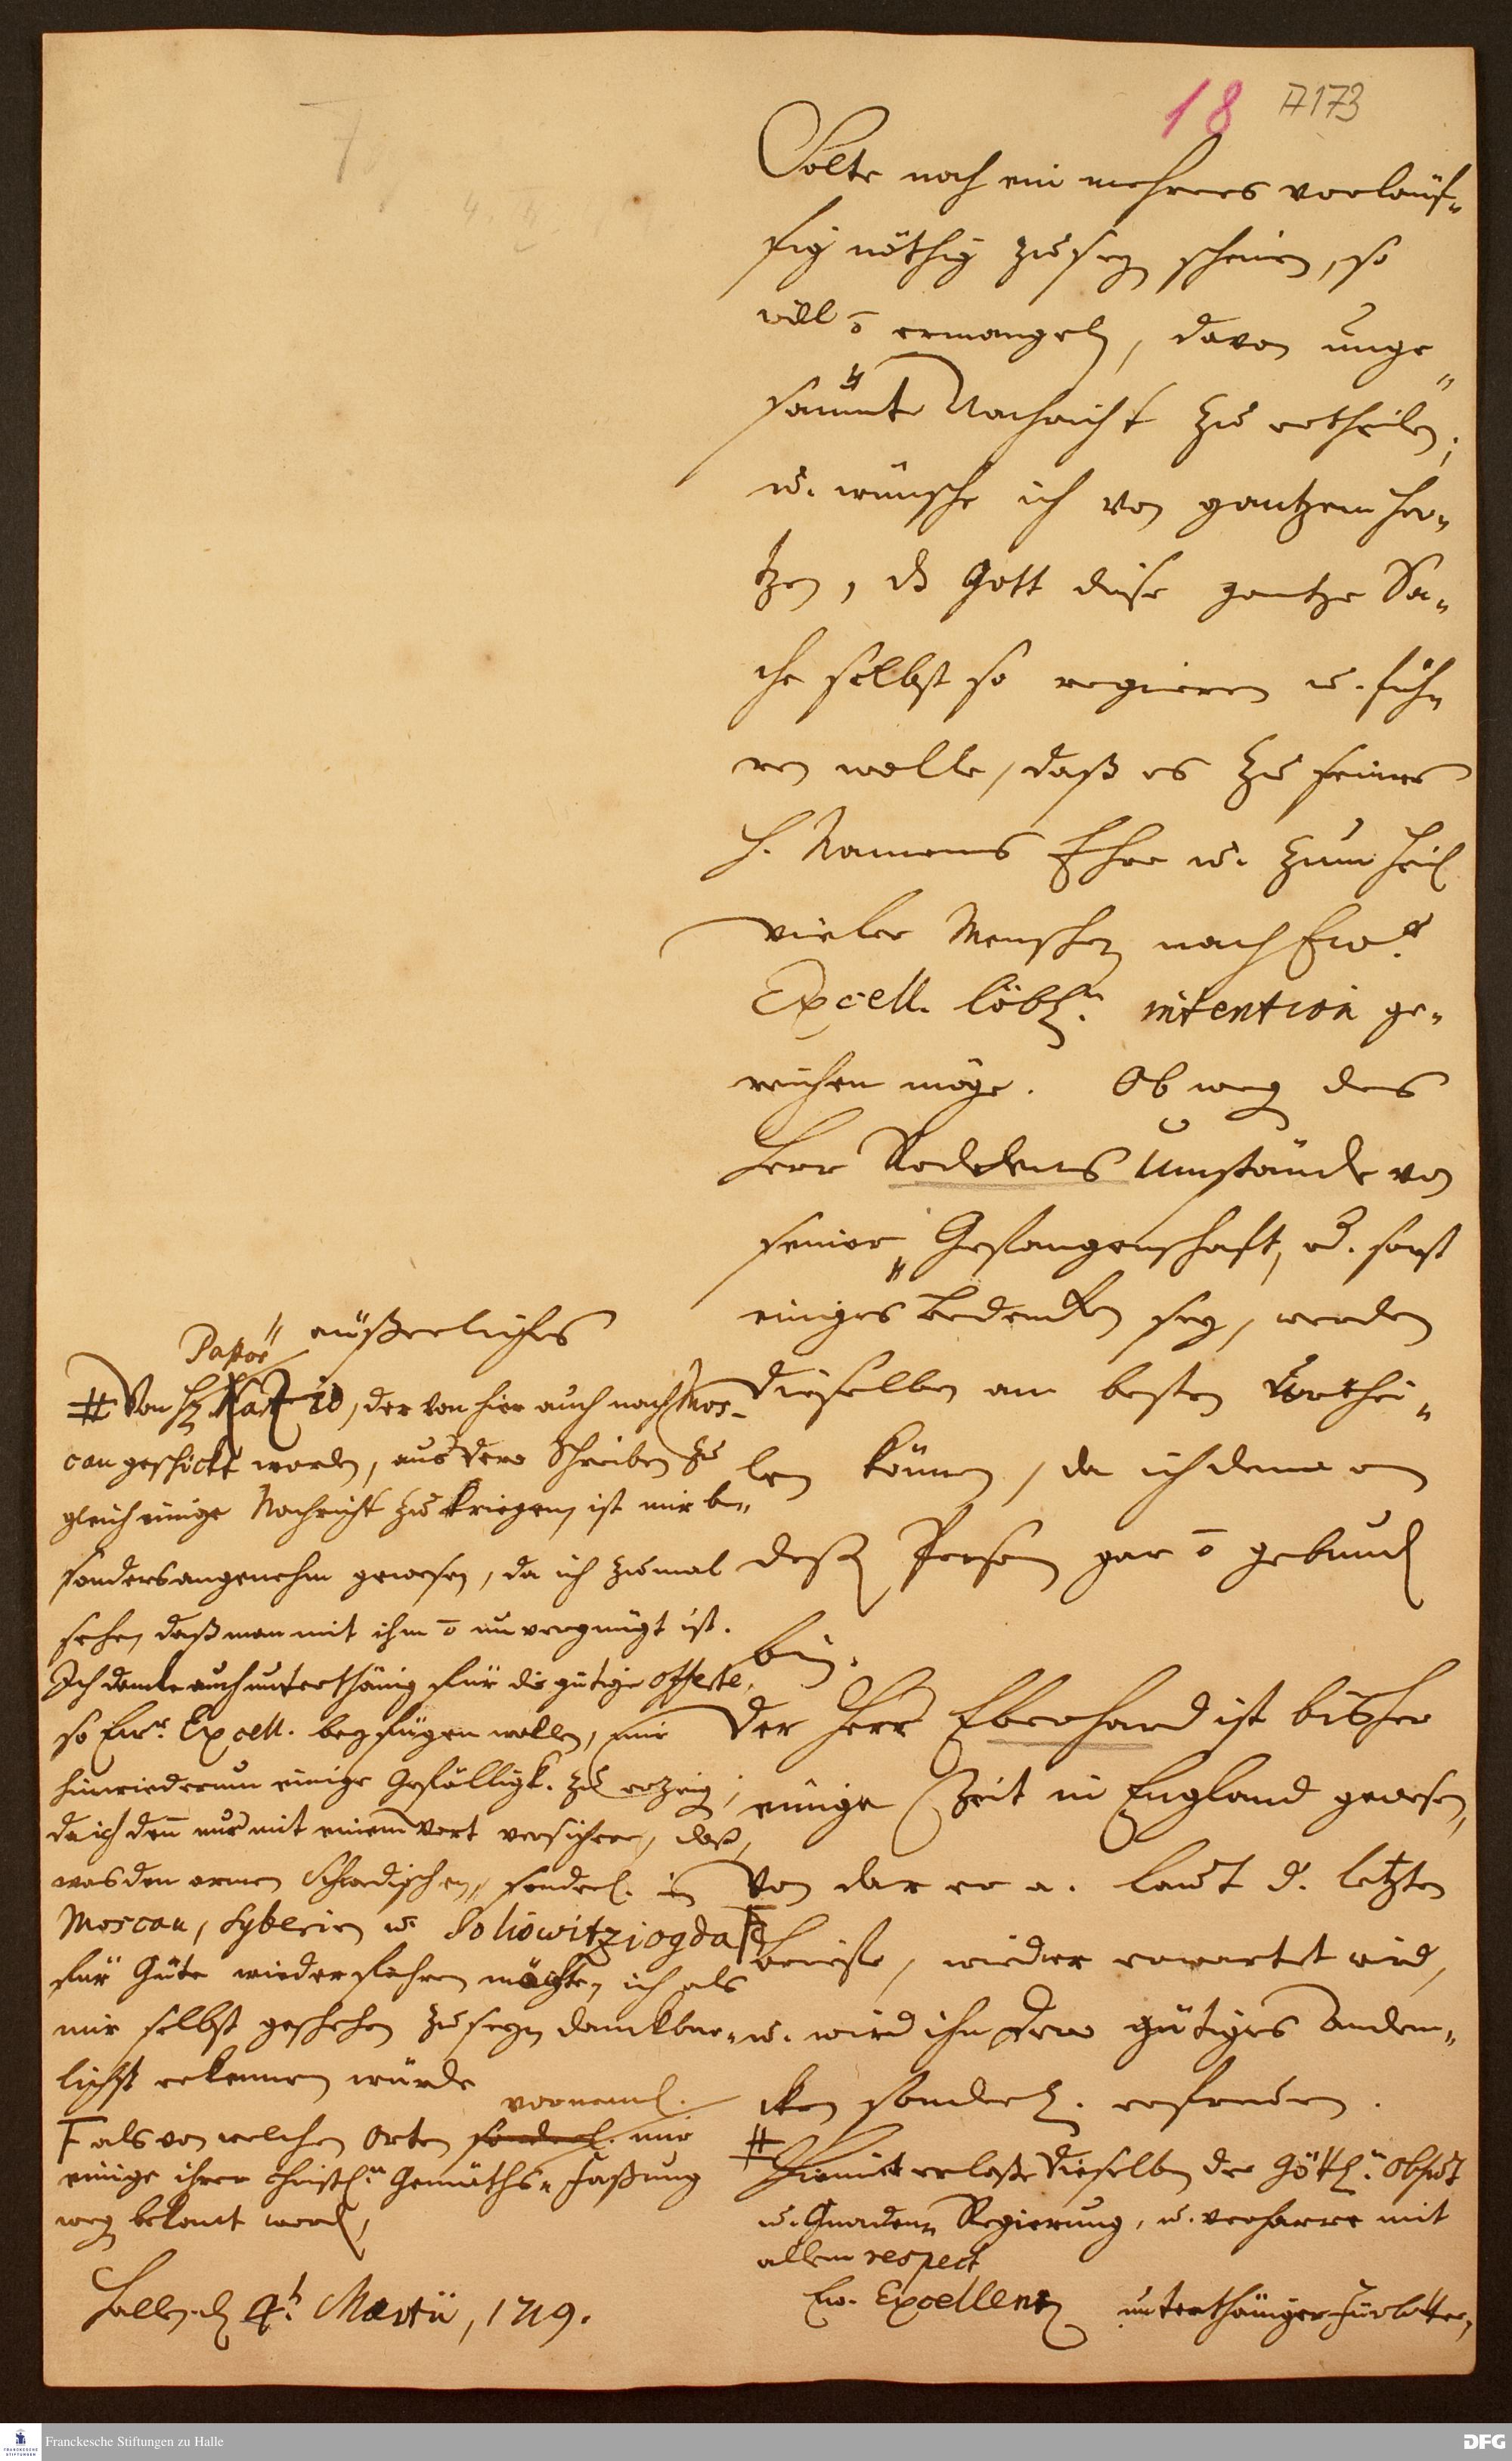 18 A173
Solte noch ein mehrers vorläuf-
fig nöthig zu seyn scheinen, so
will õ ermangeln, davon unge-
säumte Nachricht zu ertheilen;
u. wünsche ich von gantzem Her-
tzen, dß Gott diese gantze Sa-
che selbst so regieren u. füh-
ren wolle, daß es zu seines
h. Namens Ehre u. zum Heil
vieler Menschen nach Ewr.
Excell. löbln. intention ge-
reichen möge. Ob weg des
Herr Rodde Umstände von
seiner Gefangenschaft, od. sonst
einiges bedencken sey, werden
Dieselben am besten urthei-
len können, da ich denn an
deßen Person gar õ gebunden
bin.
Der Herr Eberhard ist bisher
einige Zeit in England gewesen,
von dar er a. laut d. letzten
Briefe, wieder erwartet wird,
u. wird ihn Dero gütiges Anden-
cken sonderl. erfreuen.
# Hiemit erlaße Dieselben der Göttln. Obhut
u. Gnaden-Regierung, u. verharre mit
allem respect
Ew. Excellentz unterthäniger Fürbitter,
äußerliches
Pastor
# Von H. , der von hier auch nach Mos-
cau geschickt worden, aus Dero Schreiben zu
gleich einige Nachricht zu kriegen, ist mir be-
sonders angenehm gewesen, da ich zumal
sehe, daß man mit ihm õ unvergnügt ist.
Ich dancke auch unterthänig für die gütige offerte,
so Ewr. Excell. beyfügen wollen, mir
hinwiederum einige Gefälligk. zu erzeig;
da ich den nur mit einem Wort versichere, daß,
was den armen Schwedischen, sonderl. in
Moscau, Syberien u.
für Güte wiederfahren möchte, ich als
mir selbst geschehen zu seyn danckbar-
lichst erkennen würde
vorneml.
als von welchen Orten sonderl. mir
einige ihrer christln. Gemüths-Faßung
weg bekant word,
Halle, d 4t. Martii, 1719.
Franckesche Stiftungen zu Halle
DFG